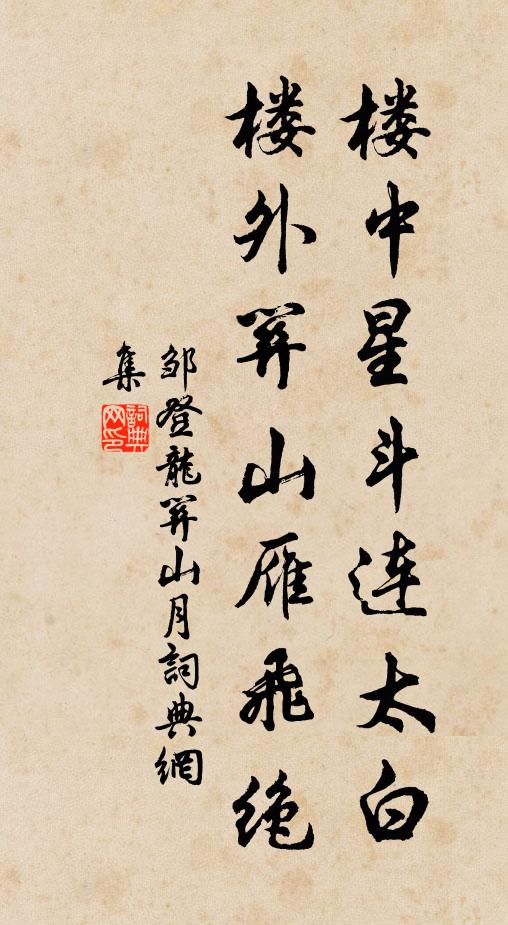 楼中星斗连太白
楼外关山雁飞绝
邹登龙关山月詞典網
集
詞典网印